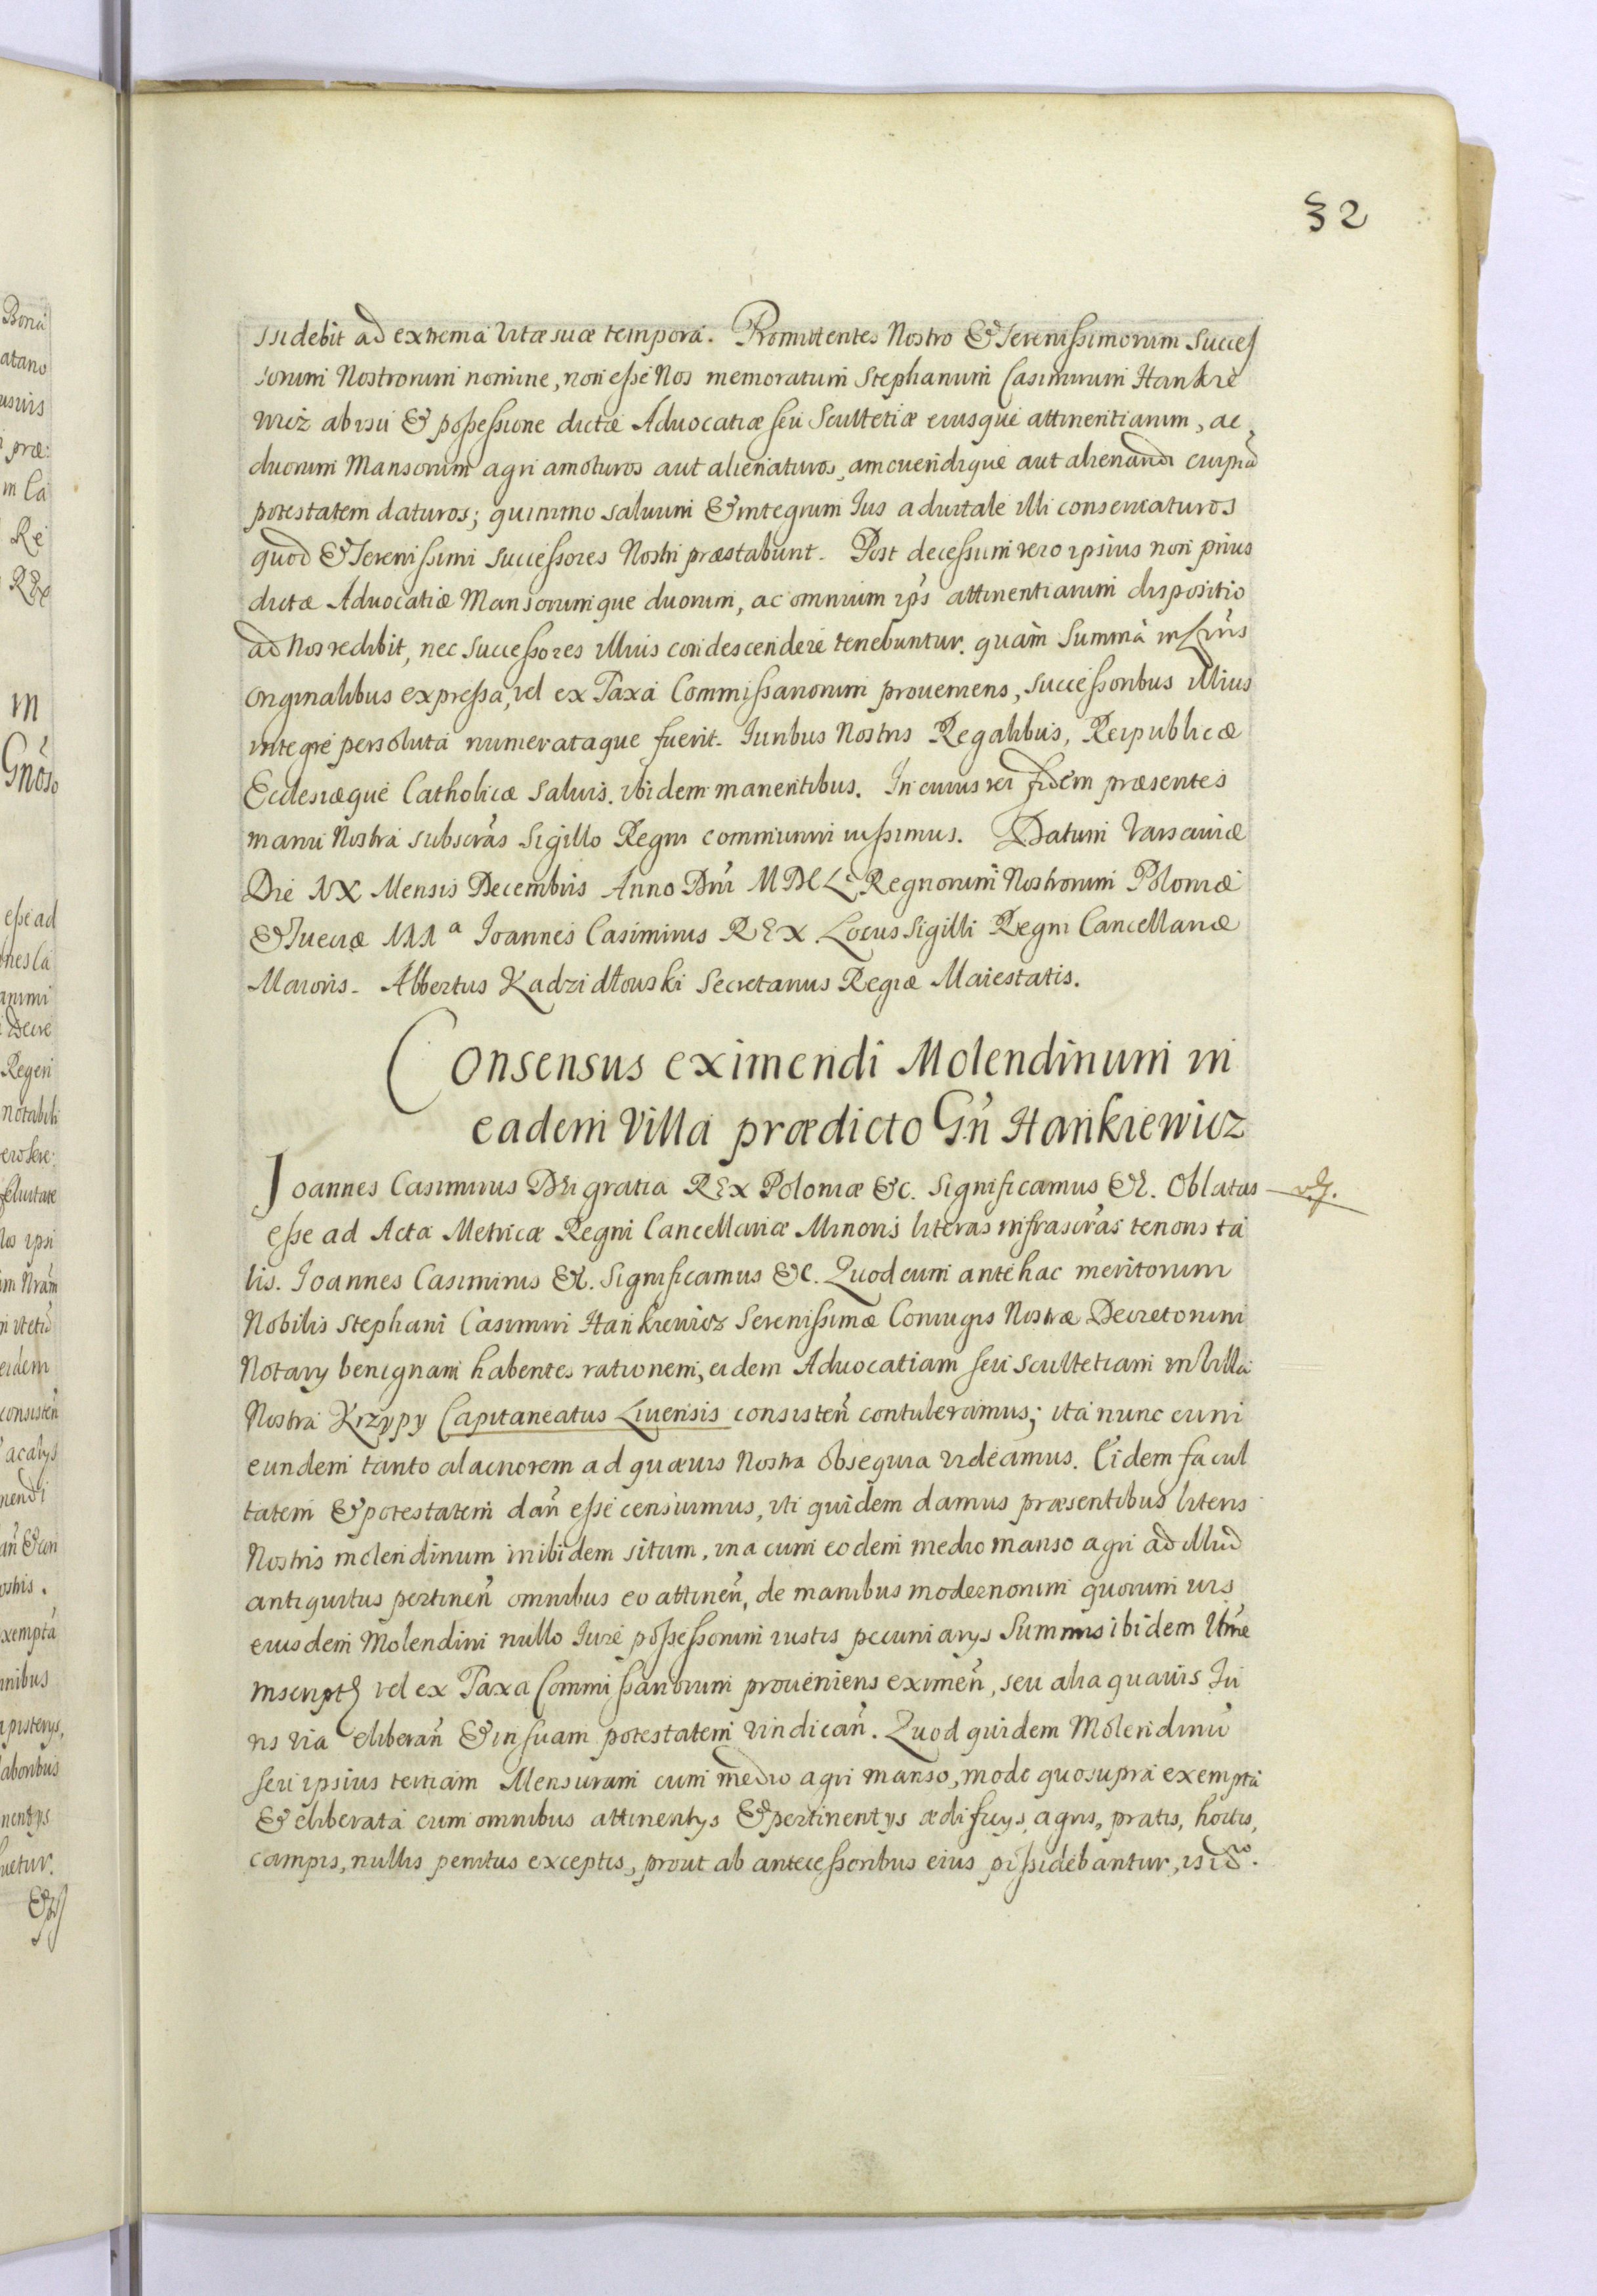 32
ssidebit ad extrema vitæ suæ tempora. Promittentes Nostro & Serenissimorum Succes
sorum Nostrorum nomine, non esse Nos memoratum Stephanum Casimirum Hankie
wicz ab usu & possessione dictæ Advocatiæ seu Scultetiæ eiusque attinentiarum, ac
duorum Mansorum agri amoturos aut alienaturos, amovendique aut alienandi cuipiã
potestatem daturos; quinimo saluum & integrum Ius aduitale illi conseruaturos
quod & Serenissimi Successores Nostri præstabunt. Post decessum vero ipsius non prius
dictæ Aduocatiæ Mansorumque duorum, ac omnium ips attinentiarum dispositio
ad Nos redibit, nec Successores illius condescendere tenebuntur. quam Summa in Lrris
originalibus expressa, vel ex Taxa Commissariorum proueniens, Successoribus illius
integre persoluta numerataque fuerit. Iuribus Nostris Regalibus, Reipublicæ
Ecclesiæque Catholicæ saluis. ibidem manentibus. In cuius rei fidem præsentes
manu Nostra subscras Sigillo Regni communiri iussimus. Datum Varsauiæ
Die XX Mensis Decembris Anno Dni MDCLo Regnorum Nostrorum Poloniæ
& Sueciæ IIIa Ioannes Casimirus REX. Locus Sigilli Regni Cancellariæ
Maioris. Albertus Kadzidłowski Secretarius Regiæ Maiestatis.
Consensus eximendi Molendinum in
eadem Villa prædicto Gn Hankiewicz
Ioannes Casimirus Dei gratia REX Poloniæ &c. Significamus &c. Oblatas
esse ad Acta Metricæ Regni Cancellariæ Minoris literas infrascras tenoris ta
lis. Ioannes Casimirus &c. Significamus &c. Quod cum antehac meritorum
Nobilis Stephani Casimiri Hankiewicz Serenissimæ Coniugis Nostræ Decretorum
Notarij benignam habentes rationem, eidem Aduocatiam seu Scultetiam in Villa
Nostra Krzypy Capitaneatus Liuensis consisten contuleramus; ita nunc cum
eundem tanto alacriorem ad quæuis Nostra obsequia videamus. Eidem facul
tatem & potestatem dan esse censuimus, uti quidem damus præsentibus literis
Nostris molendinum inibidem situm, una cum eodem medio manso agri ad illud
antiquitus pertinen omnibus eo attinen, de manibus modernorum quorum uis
eiusdem Molendini nullo Iure possessorum iustis pecuniarijs Summis ibidem ltme
inscriptis vel ex Taxa Commissariorum proueniens eximen, seu alia quauis Iu
ris via eliberan & in suam potestatem vindican. Quod quidem Molendinũ
seu ipsius tertiam Mensuram cum medio agri manso, modo quo supra exempta
& eliberata cum omnibus attinentijs & pertinentijs ædificijs, agris, pratis, hortis,
campis, nullis penitus exceptis, prout ab antecessoribus eius possidebantur, is